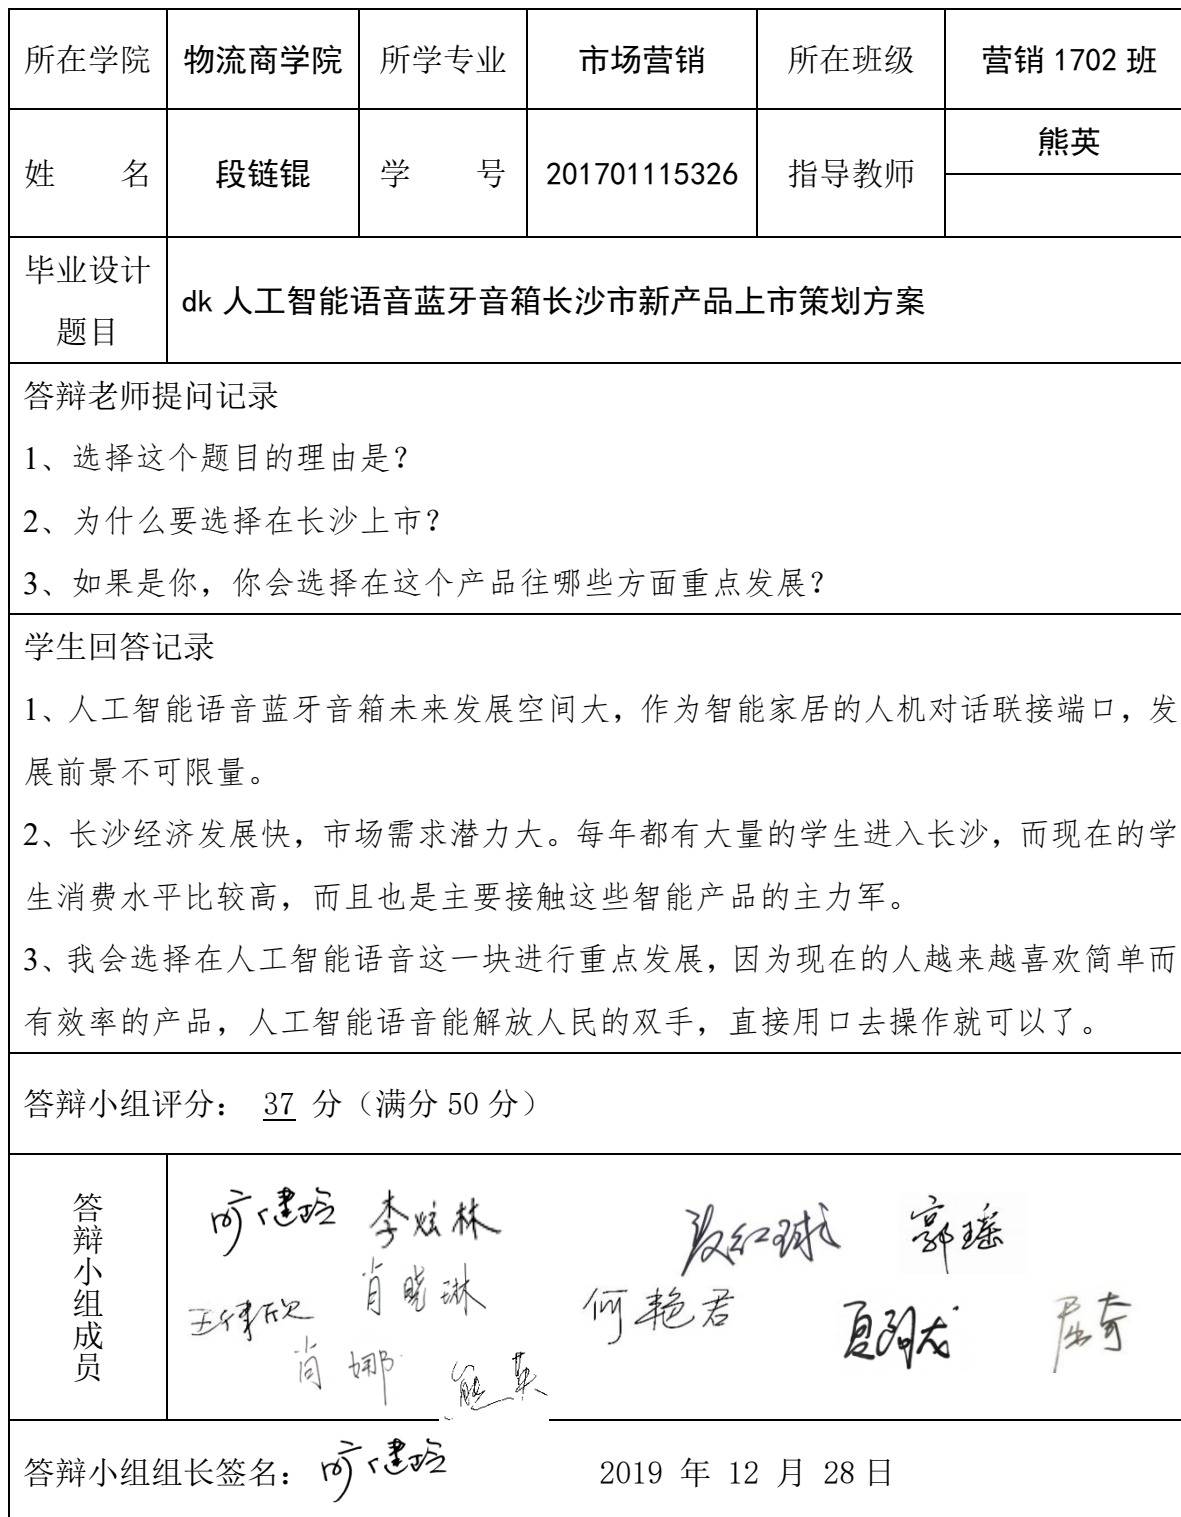 所在学院 物流商学院 所学专业 市场营销 所在班级 营销 1702 班
姓 名 段链锟 学 号 201701115326 指导教师 熊英
毕业设计题目 dk 人工智能语音蓝牙音箱长沙市新产品上市策划方案
答辩老师提问记录
1、选择这个题目的理由是？
2、为什么要选择在长沙上市？
3、如果是你，你会选择在这个产品往哪些方面重点发展？
学生回答记录
1、人工智能语音蓝牙音箱未来发展空间大，作为智能家居的人机对话联接端口，发
展前景不可限量。
2、长沙经济发展快，市场需求潜力大。每年都有大量的学生进入长沙，而现在的学
生消费水平比较高，而且也是主要接触这些智能产品的主力军。
3、我会选择在人工智能语音这一块进行重点发展，因为现在的人越来越喜欢简单而
有效率的产品，人工智能语音能解放人民的双手，直接用口去操作就可以了。
答辩小组评分： 37 分（满分 50 分）
答辩小组成员
李炫林 郭瑶
肖晓琳 何艳君 屈奇
肖娜 熊英
答辩小组组长签名： 2019 年 12 月 28 日